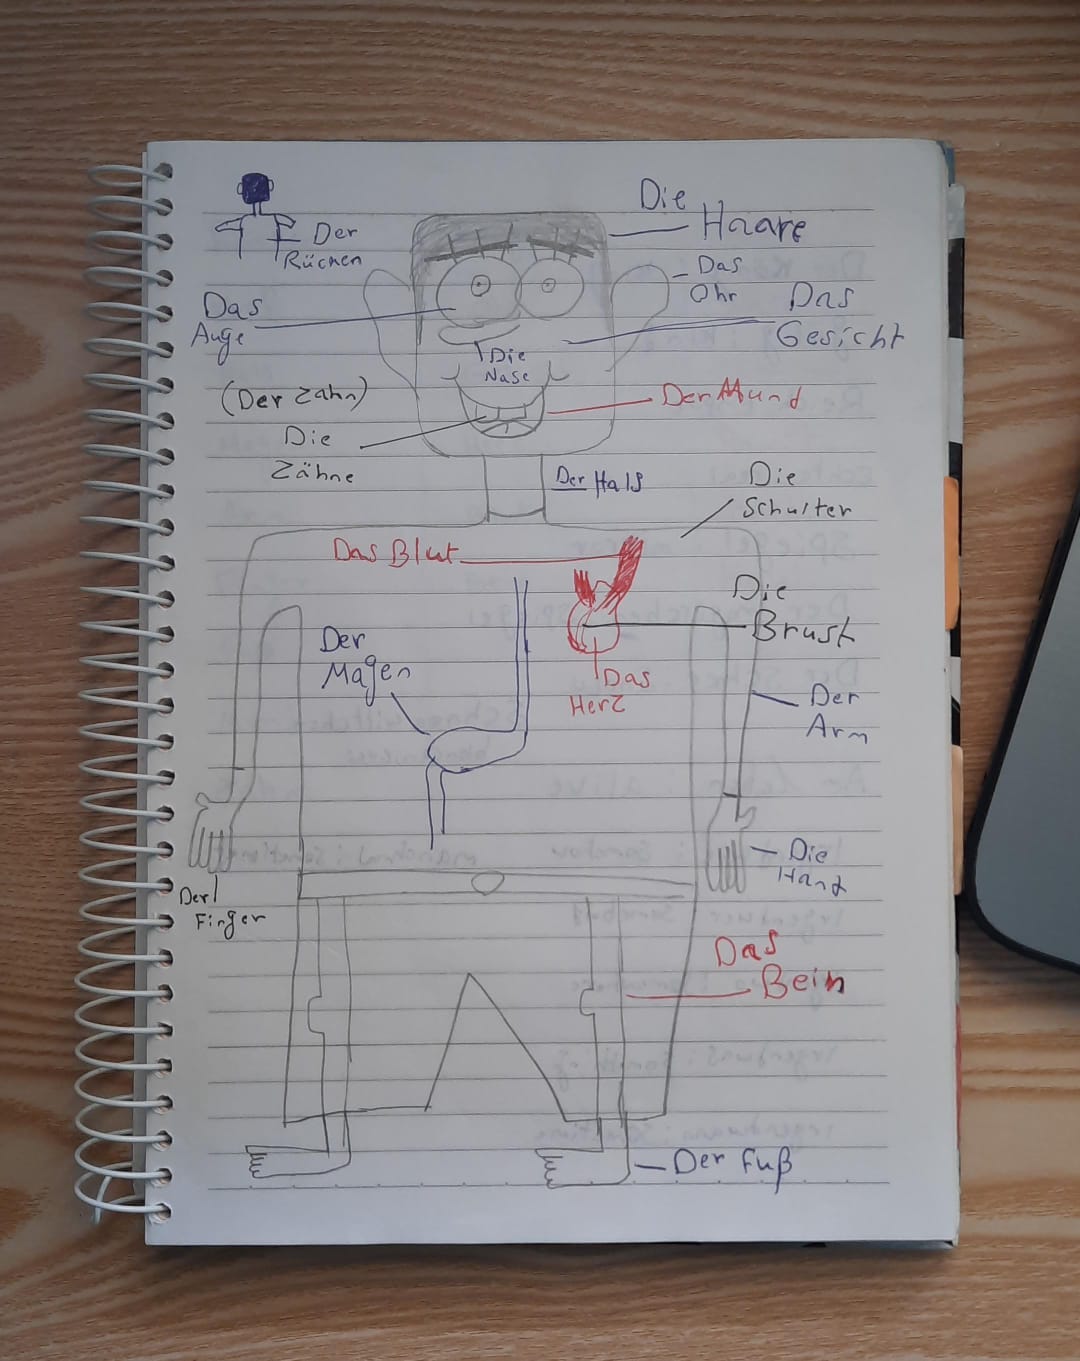 Die
Haare
Der
Rücken
Das
Ohr
Das
Gesicht
Das
Auge
Die
Nase
(Der Zahn)
Der Mund
Die
Zähne
Der Hals
Die
Schulter
Das Blut
Die
Brust
Der
Magen
Das
Herz
Der
Arm
Die
Hand
Der
Finger
Das
Bein
Der Fuß